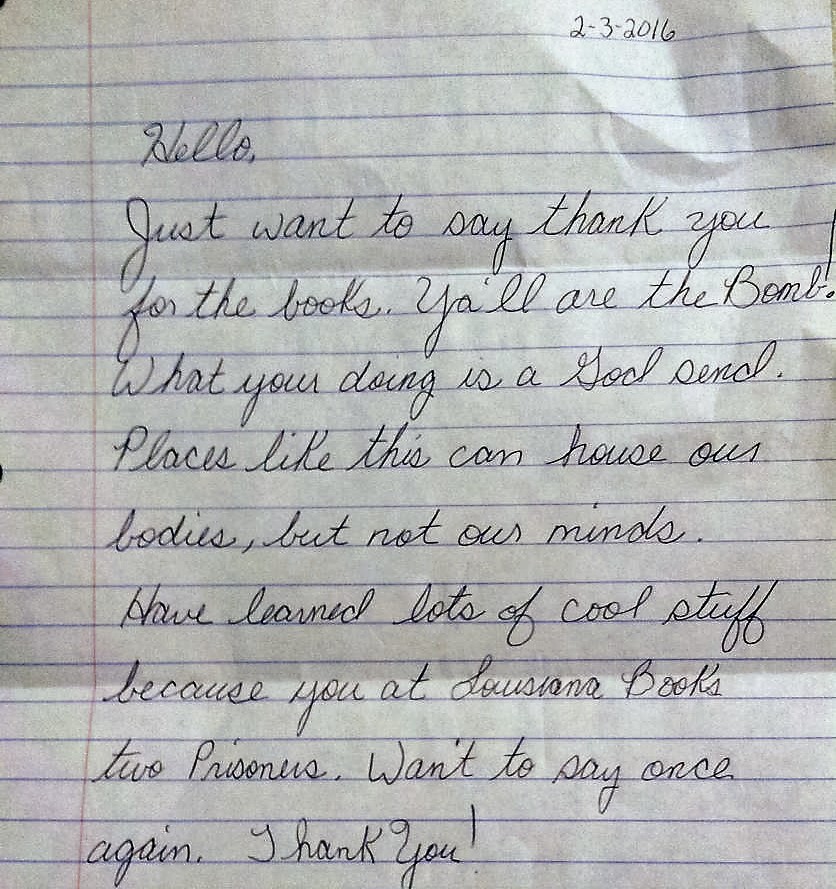 2-3-2016
Hello,
Just want to say thank you
for the books. Ya'll are the Bomb!
What your doing is a God send.
Places like this can house our
bodies, but not our minds.
Have learned lots of cool stuff
because you at Lousiana Books
two Prisoners. Want to say once
again. Thank You!